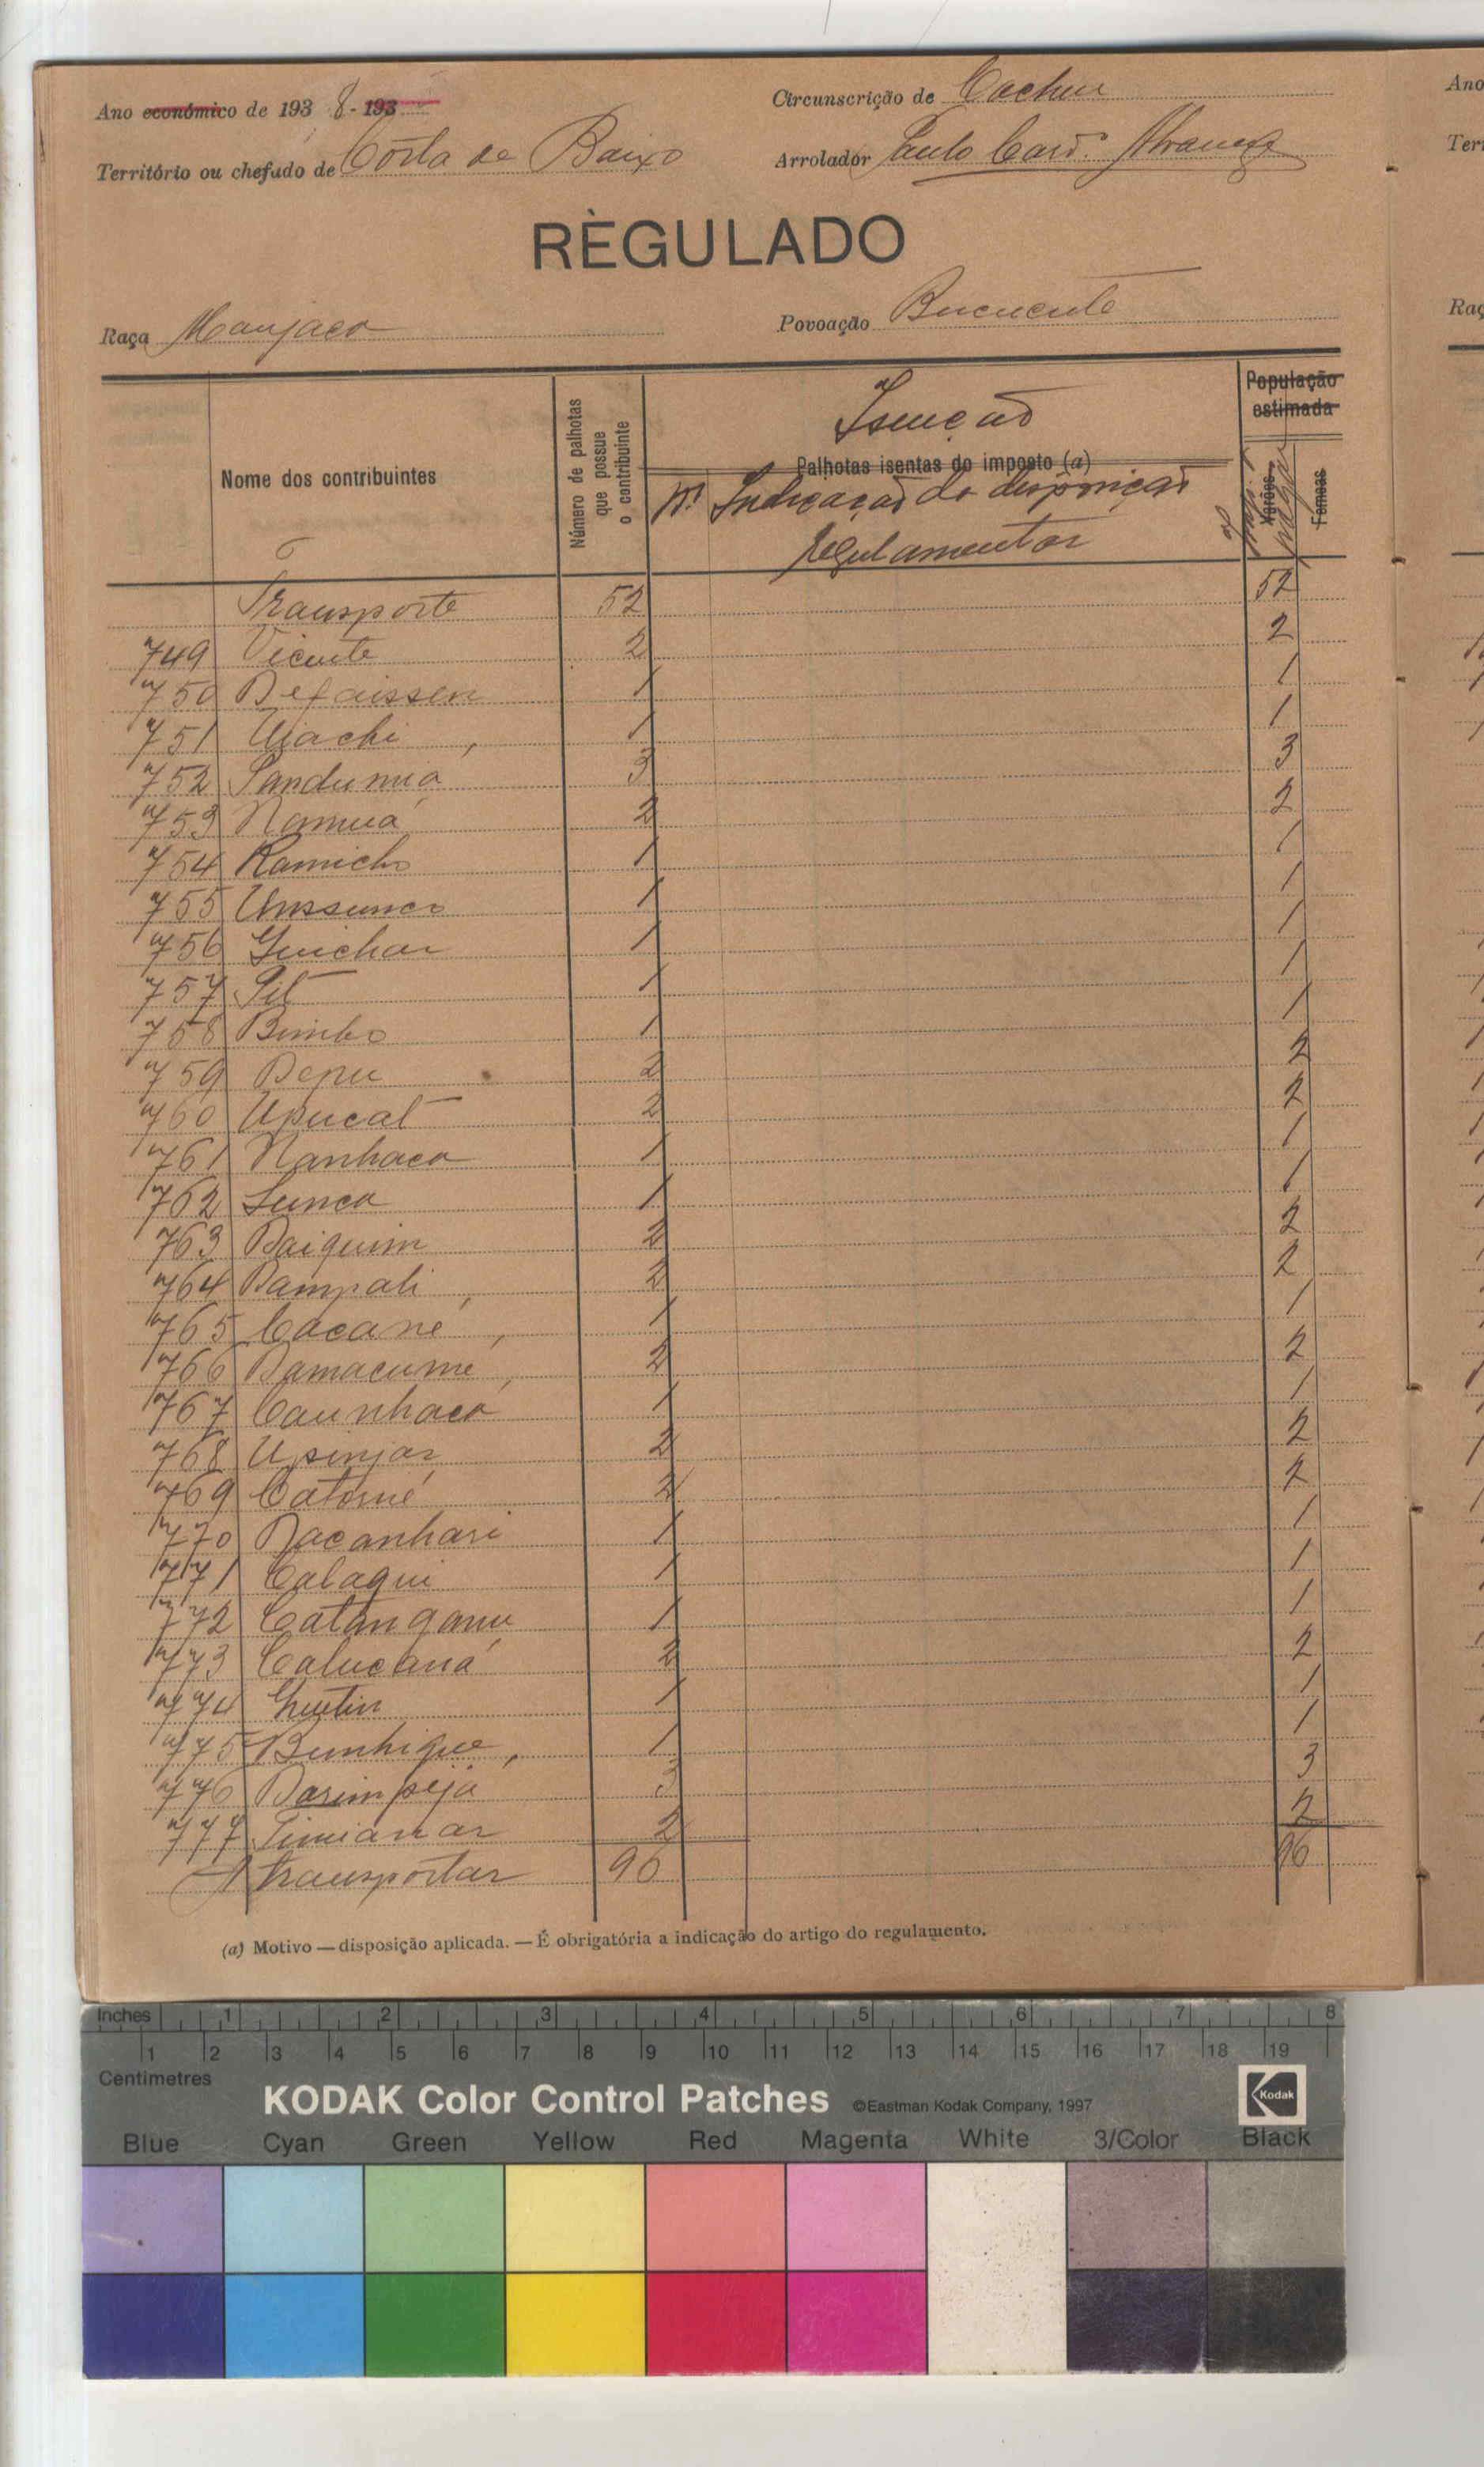 Ano económico de 193 8-193
Circunscrição de Cacheu
Território ou chefado de Costa de Baixo
Arrolador Paulo Card. Alvarenga
RÈGULADO
Raça Manjaco
Povoação Bucucute
Nome dos contribuintes
Número de palhotas que possue o contribuinte
Isenção
Palhotas isentas do imposto (a)
Nº Indicação da disposição
regulamentar
População estimada
Varões
Femeas
Transporte 52 52
749 Vicente 2 2
750 Defaissen 1 1
751 Uachi 1 1
752 Pandumiá 3 3
753 Namuá 2 2
754 Ramicho 1 1
755 Umssunco 1 1
756 Guichar 1 1
757 Pit 1 1
758 Bimbo 1 1
759 Depu 2 2
760 Upucat 2 2
761 Nanhaca 1 1
762 Lunca 1 1
763 Baiquim 2 2
764 Bampali 2 2
765 Cacané 1 1
766 Damacumé 2 2
767 Caunhaca 1 1
768 Upinjar 2 2
769 Catomé 2 2
770 Dacanhari 1 1
771 Calaqui 1 1
772 Catanganu 1 1
773 Calucaná 2 2
774 Guntin 1 1
775 Bunhique 1 1
776 Barimpeja 3 3
777 Timianar 2 2
A transportar 96 96
(a) Motivo — disposição aplicada. — É obrigatória a indicação do artigo do regulamento.
Inches 1 2 3 4 5 6 7 8
1 2 3 4 5 6 7 8 9 10 11 12 13 14 15 16 17 18 19
Centimetres
KODAK Color Control Patches ©Eastman Kodak Company, 1997 Kodak
Blue Cyan Green Yellow Red Magenta White 3/Color Black